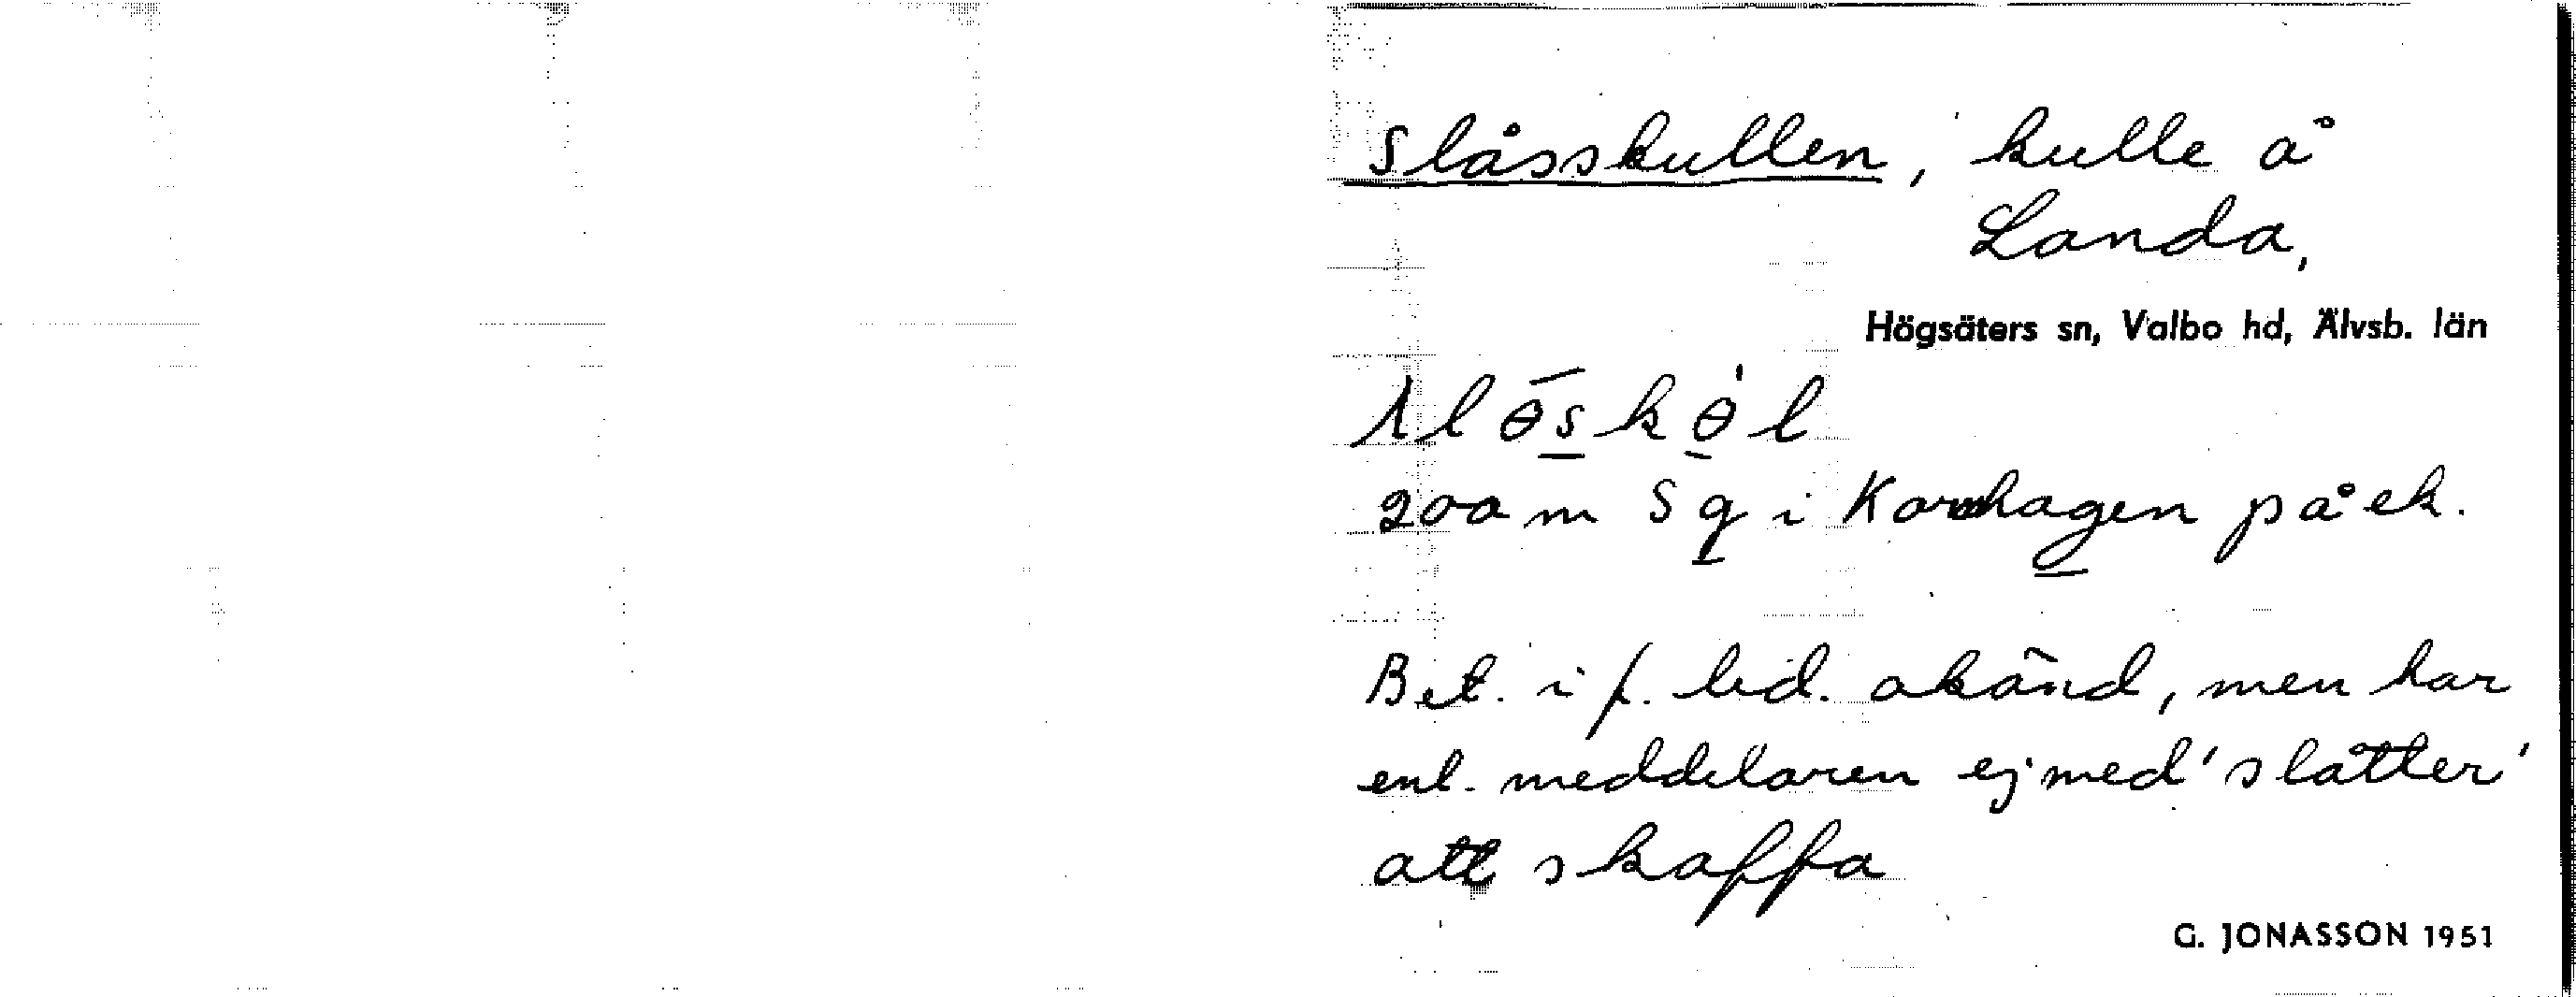 Slåsskullen, kulle å
Landa,
Högsäters sn, Valbo hd, Älvsb. län
200 m S g i Korshagen på ek.
Bet. i f. led. okänd, men har
enl. meddelaren ej med 'slåtter'
att skaffa
G. JONASSON 1951